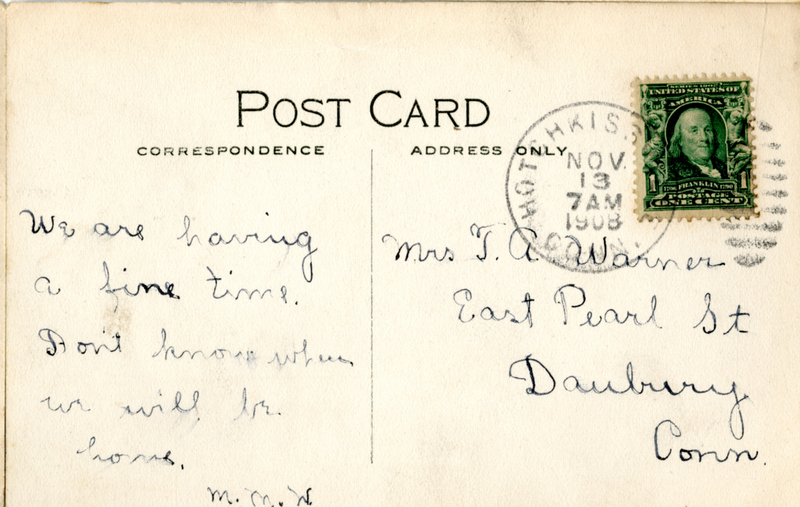 POST CARD
CORRESPONDENCE
ADDRESS ONLY
HOTCHKISS
CONN.
NOV.
13
7AM
1908
SERIES 1902
UNITED STATES OF
AMERICA
1
1706 FRANKLIN 1790
POSTAGE
ONE CENT
We are having
a fine time.
Don't know when
we will be
home.
M. M. W
Mrs T. A. Warner
East Pearl St
Danbury
Conn.